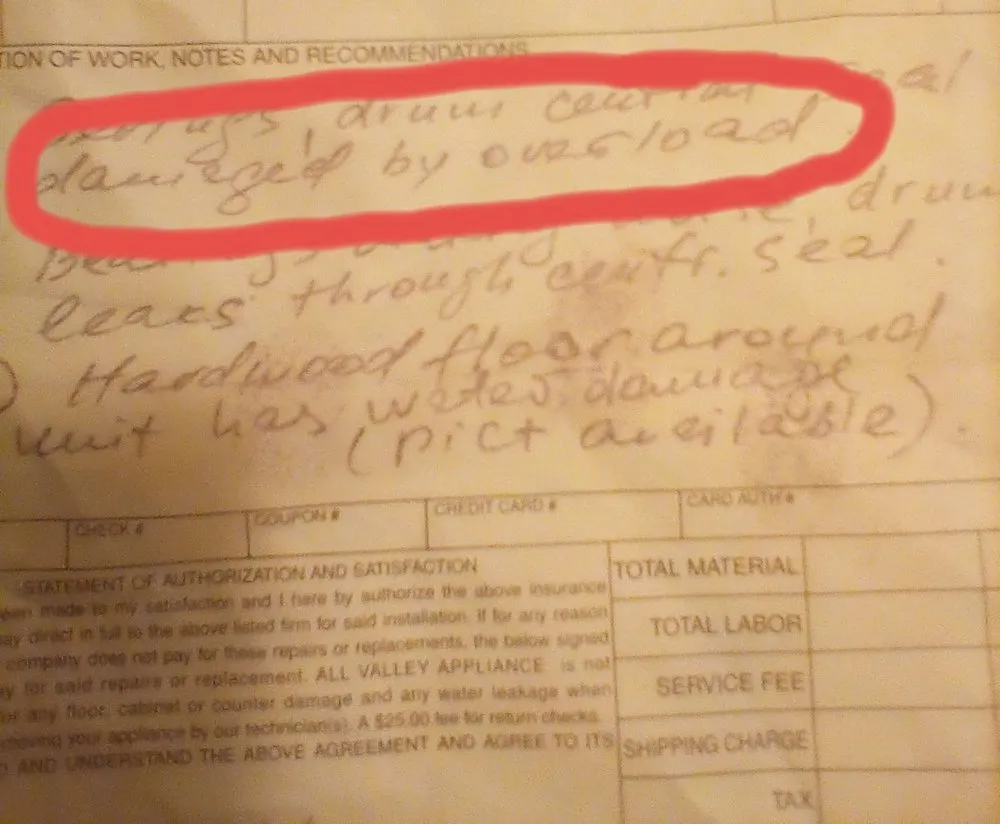 TION OF WORK, NOTES AND RECOMMENDATIONS
drum central seal
damaged by overload.
drum
leaks through centr. seal.
) Hardwood floor around
unit has water damage
(pict available).
CHECK # COUPON # CREDIT CARD # CARD AUTH #
STATEMENT OF AUTHORIZATION AND SATISFACTION
een made to my satisfaction and I here by authorize the above insurance
ay direct in full to the above listed firm for said installation. If for any reason
company does not pay for these repairs or replacements, the below signed
y for said repairs or replacement. ALL VALLEY APPLIANCE is not
or any floor, cabinet or counter damage and any water leakage when
moving your appliance by our technician(s). A $25.00 fee for return checks.
D AND UNDERSTAND THE ABOVE AGREEMENT AND AGREE TO ITS
TOTAL MATERIAL
TOTAL LABOR
SERVICE FEE
SHIPPING CHARGE
TAX